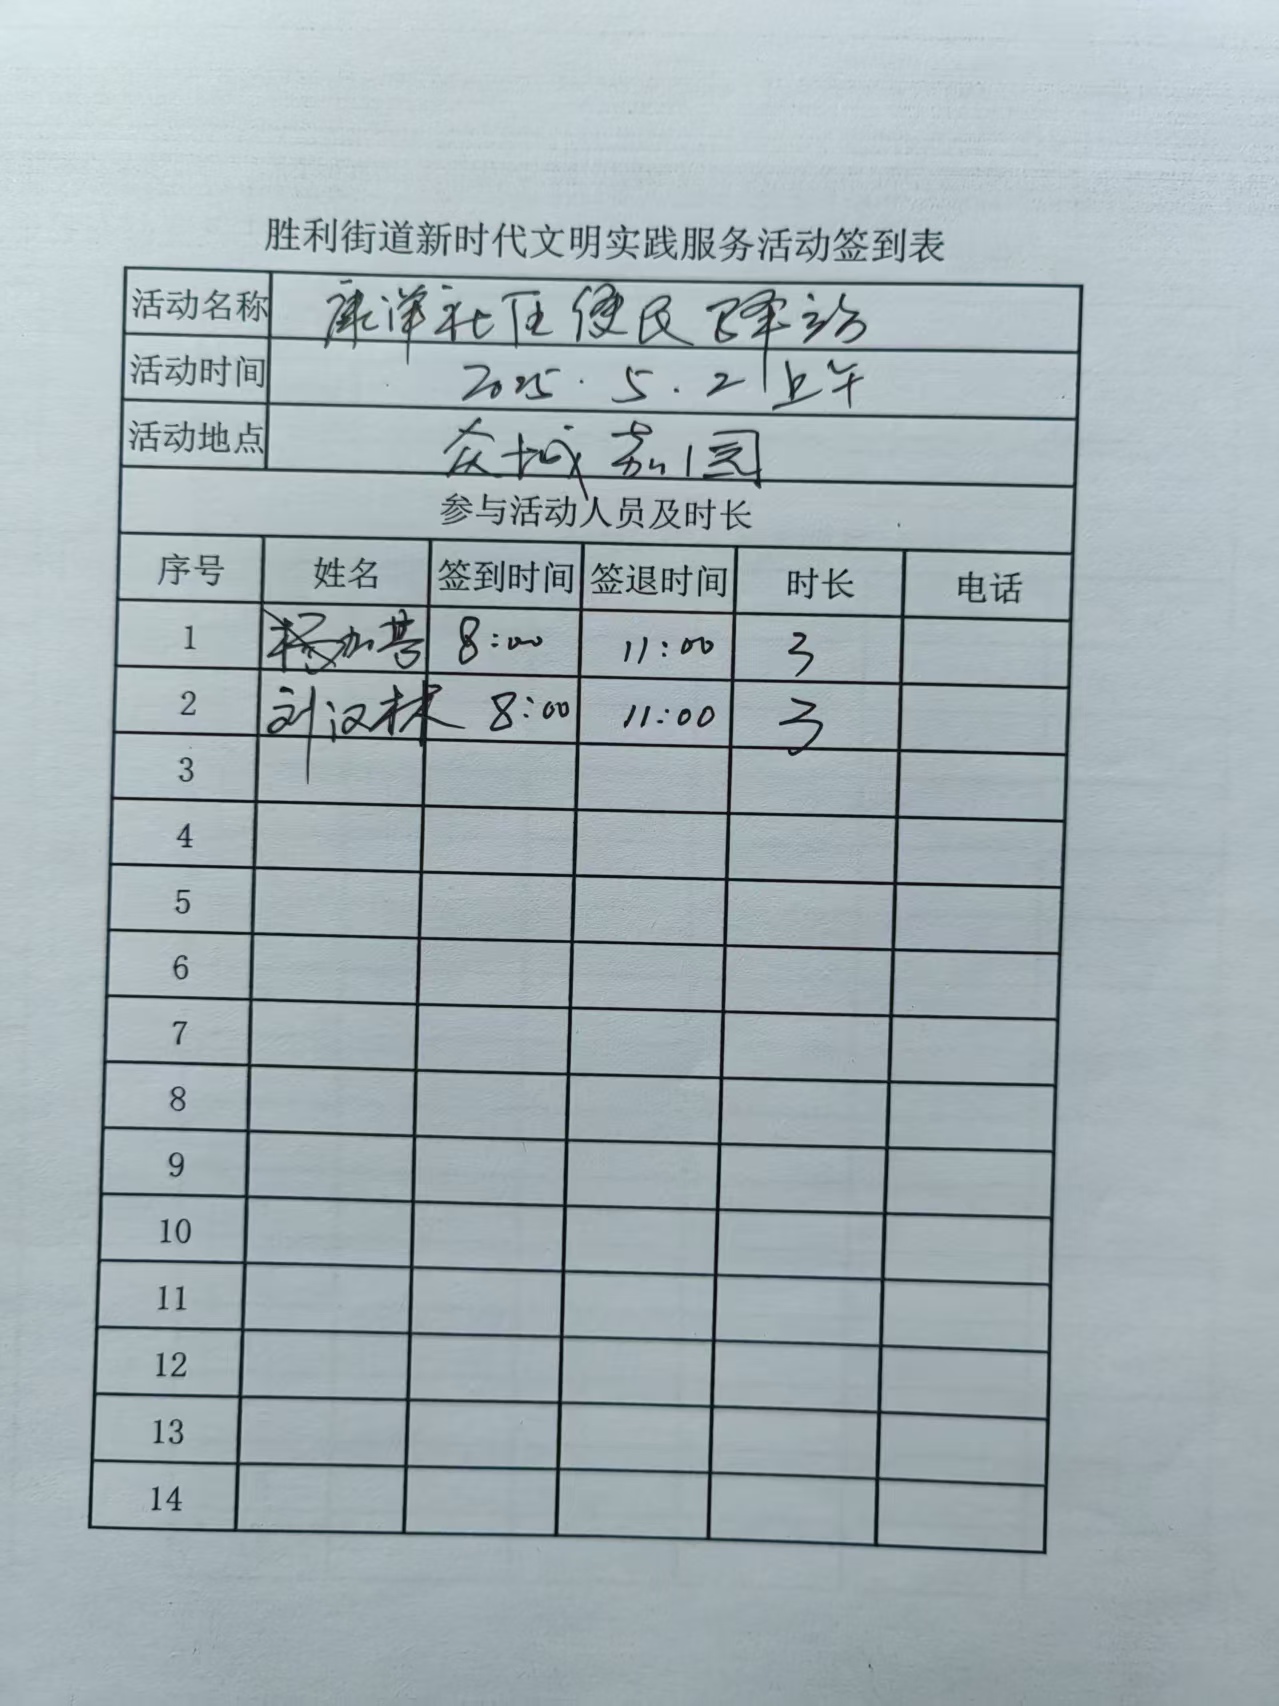 胜利街道新时代文明实践服务活动签到表
活动名称 康洋社区便民驿站
活动时间 2025.5.21上午
活动地点 众城嘉园
参与活动人员及时长
序号 姓名 签到时间 签退时间 时长 电话
1 8:00 11:00 3
2 刘汉林 8:00 11:00 3
3
4
5
6
7
8
9
10
11
12
13
14